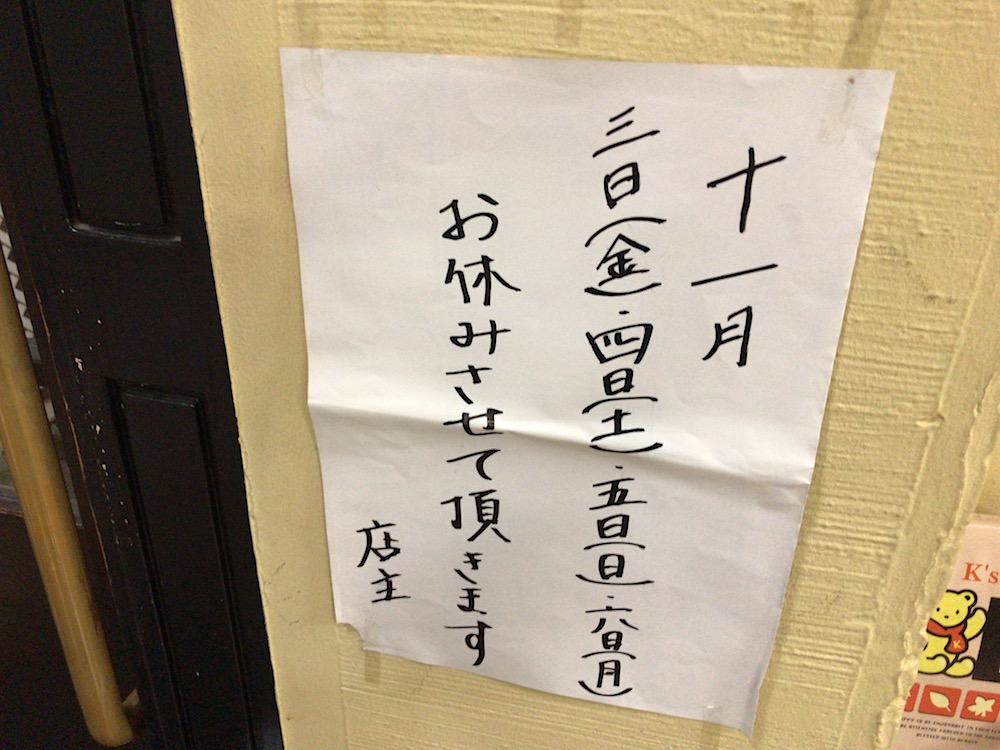 十一月
三日(金)・四日(土)・五日(日)・六日(月)
お休みさせて頂きます
店主
K's
K
BLESSED WITH BEAUTY